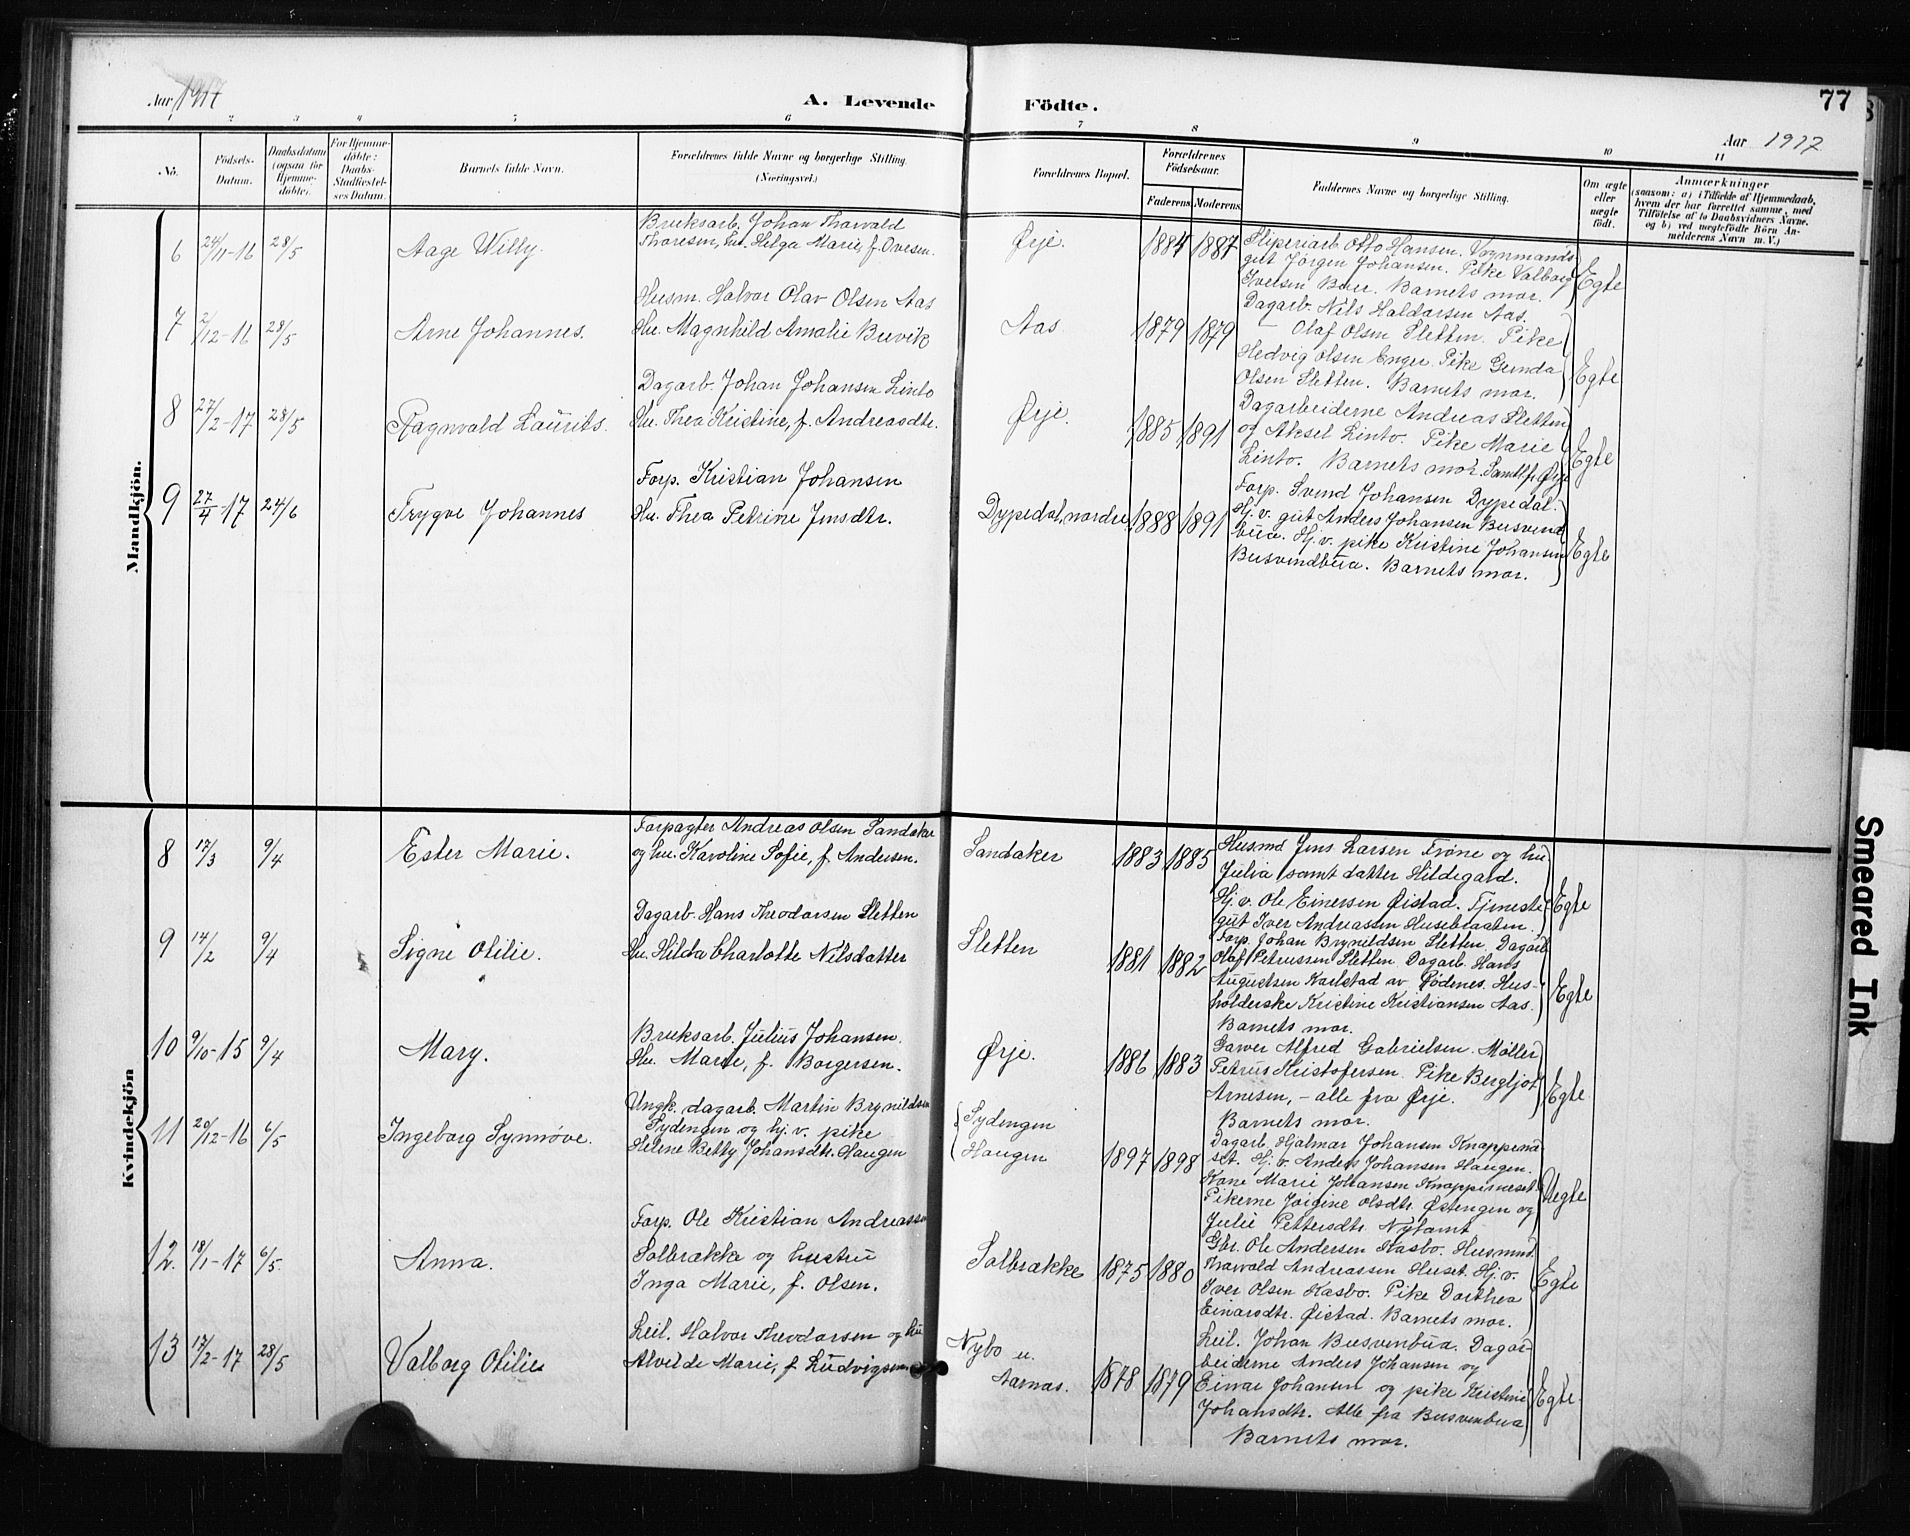 Aar 1917
A. Levende Födte.
77
Aar 1917
1 2 3 4 5 6 7 8 9 10 11
No.
Födsels-Datum.
Daabsdatum (ogsaa for Hjemme-döbte).
For Hjemme-döbte: Daabs-Stadfæstel-ses Datum.
Barnets fulde Navn.
Forældrenes fulde Navne og borgerlige Stilling. (Næringsvei.)
Forældrenes Bopæl.
Forældrenes Födselsaar.
Faderens. Moderens.
Faddernes Navne og borgerlige Stilling.
Om ægte eller uægte födt.
Anmærkninger
(saasom: a) i Tilfælde af Hjemmedaab, hvem der har forrettet samme, med Tilföielse af to Daabsvidners Navne, og b) ved uægtefödte Börn An-melderens Navn m. V.)
Mandkjön.
6 24/11-16 28/5 Aage Willy.
Bruksarb. Johan Thorvald
Thoresen, hu. Helga Marie f. Ovesen.
Ørje. 1884 1887
Sliperiarb. Otto Hansen. Vognmands-
gut Jörgen Johansen. Pike Valborg
Iversen Buer. Barnets mor.
Egte
7 2/12-16 28/5 Arne Johannes.
Husm. Halvor Olav Olsen Aas
Hu. Magnhild Amalie Buvik
Aas 1879 1879
Dagarb. Nils Haldorsen Aas.
— Olaf Olsen Sletten. Pike
Hedvig Olsen Enger. Pike Gunda
Olsen Sletten. Barnets mor.
Egte
8 27/2-17 28/5 Ragnvald Laurits.
Dagarb. Johan Johansen Linto
Hu. Thea Kristine, f. Andreasdtr.
Ørje. 1885 1891
Dagarbeiderne Andreas Sletten
og Aksel Linto. Pike Marie
Linto. Barnets mor. Samtl. f. Ørje
Egte
9 27/4-17 24/6 Trygve Johannes
Forp. Kristian Johansen
Hu. Thea Petrine Jensdtr.
Dypedal, nordre 1888 1891
Forp. Svend Johansen Dypedal.
Hj. v. gut Anders Johansen Busvend
bua. Hj. v. pike Kristine Johansen
Busvendbua. Barnets mor.
Egte
Kvindekjön
8 17/3 9/4 Ester Marie.
Forpagter Andreas Olsen Sandaker
og hu. Karoline Sofie, f. Andersen.
Sandaker 1883 1885
Husmd Jens Larsen Trøne og hu.
Julia samt datter Hildegard.
Hj. v. Ole Einersen Øistad. Tjeneste-
gut Iver Andreassen Husebraaten.
Egte
9 14/2 9/4 Signe Otilie.
Dagarb. Hans Theodorsen Sletten
Hu. Hilda Charlotte Nilsdatter
Sletten 1881 1882
Forp. Johan Brynildsen Sletten. Dagarb.
Olaf Petrussen Sletten. Dagarb. Hans
Augustsen Karlstad av Rödenes. Hus-
holderske Kristine Kristiansen Aas.
Barnets mor.
Egte
10 9/10-15 9/4 Mary.
Bruksarb. Julius Johansen.
Hu. Marie, f. Borgersen.
Ørje. 1886 1883
Garver Alfred Gabrielsen. Møller
Petrus Kristofersen. Pike Bergljot
Arnesen, - alle fra Ørje.
Barnets mor.
Egte
11 20/12-16 6/5 Ingeborg Synnøve.
Ungk. dagarb. Martin Brynildsen
Sydengen og hj. v. pike
Helene Betty Johansdtr. Haugen
Sydengen
Haugen
1897 1898
Dagarb. Hjalmar Johansen Knapperud
set. Hj. v. Anders Johansen Haugen.
Kone Marie Johansen Knapperudset.
Pikerne Jørgine Olsdtr. Østengen og
Julie Pettersdtr. Nytomt
Uegte
12. 18/1-17 6/5. Anna.
Forp. Ole Kristian Andreassen
Solbrække og hustru
Inga Marie, f. Olsen.
Solbrække 1875 1880
Gbr. Ole Andersen Kasbo. Husmnd.
Thorvald Andreassen Huset. Hj. v.
Iver Olsen Kasbo. Pike Dorthea
Einarsdtr. Øistad. Barnets mor.
Egte
13 17/2-17 28/5 Valborg Otilie
Leil. Halvor Theodorsen og hu
Alvilde Marie, f. Ludvigsen
Nybo u.
Aarnæs.
1878 1879
Leil. Johan Busvenbua. Dagar-
beiderne Anders Johansen og
Einar Johansen og pike Kristine
Johansdtr. Alle fra Busvenbua
Barnets mor.
Egte.
Smeared Ink